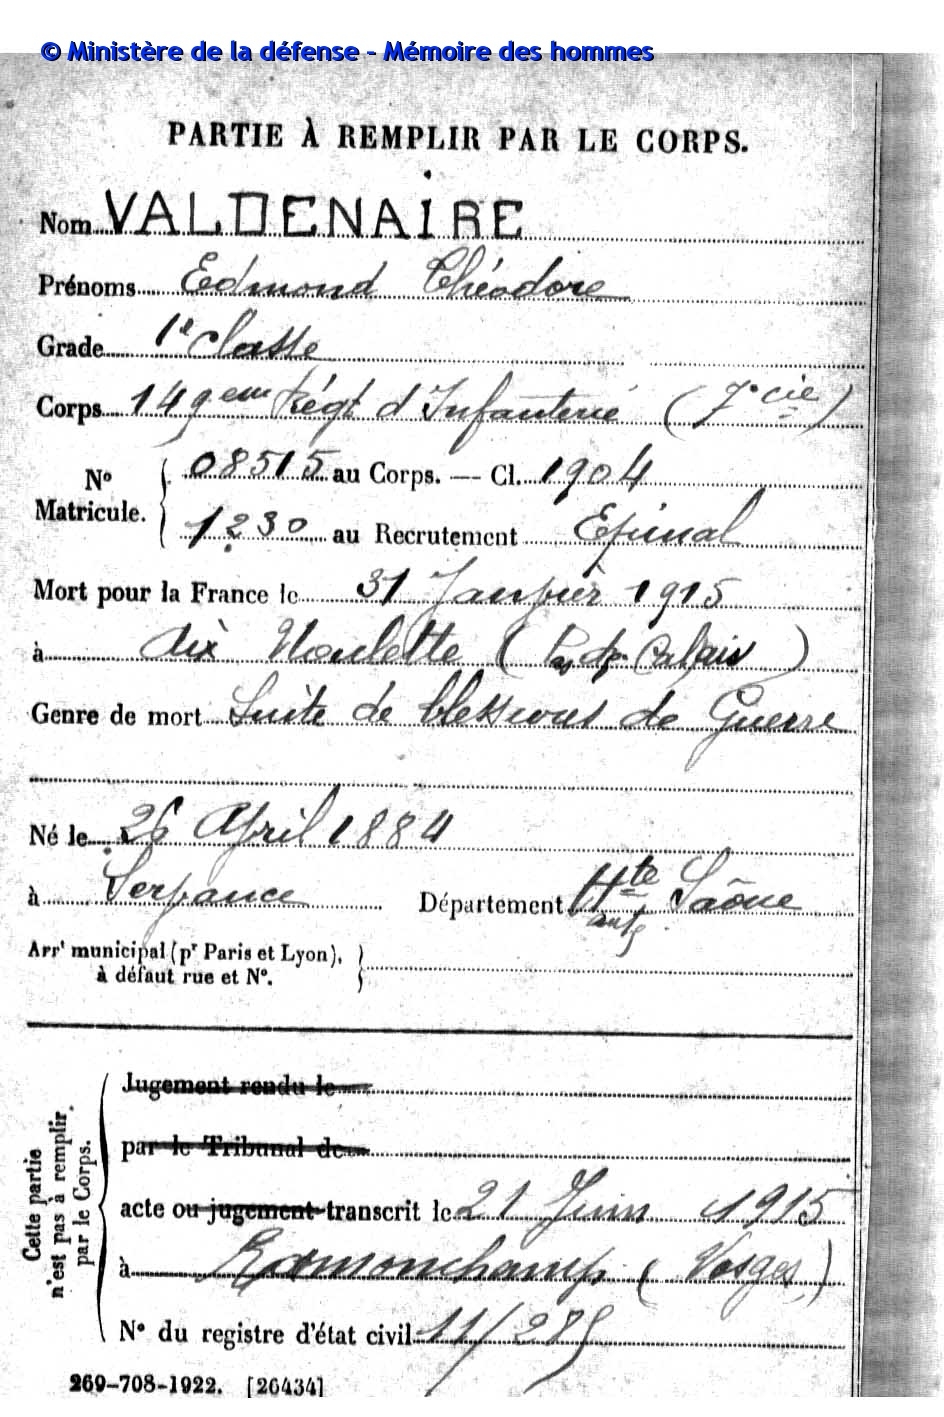 © Ministère de la défense - Mémoire des hommes
PARTIE À REMPLIR PAR LE CORPS.
Nom VALDENAIRE
Prénoms Edmond Théodore
Grade 1e classe
Corps 149eme Régt d'Infanterie (7e cie)
No Matricule. { 08515 au Corps. — Cl. 1904
1230 au Recrutement Epinal
Mort pour la France le 31 Janvier 1915
à Aix Noulette (Pas de Calais)
Genre de mort Suite de blessures de Guerre
Né le 26 Avril 1884
à Servance Département Hte Saône
Arrt municipal (pr Paris et Lyon),
à défaut rue et No.
Cette partie n'est pas à remplir par le Corps.
Jugement rendu le
par le Tribunal de
acte ou jugement transcrit le 21 Juin 1915
à Ramonchamp (Vosges)
No du registre d'état civil 11/285
269-708-1922. [26434]